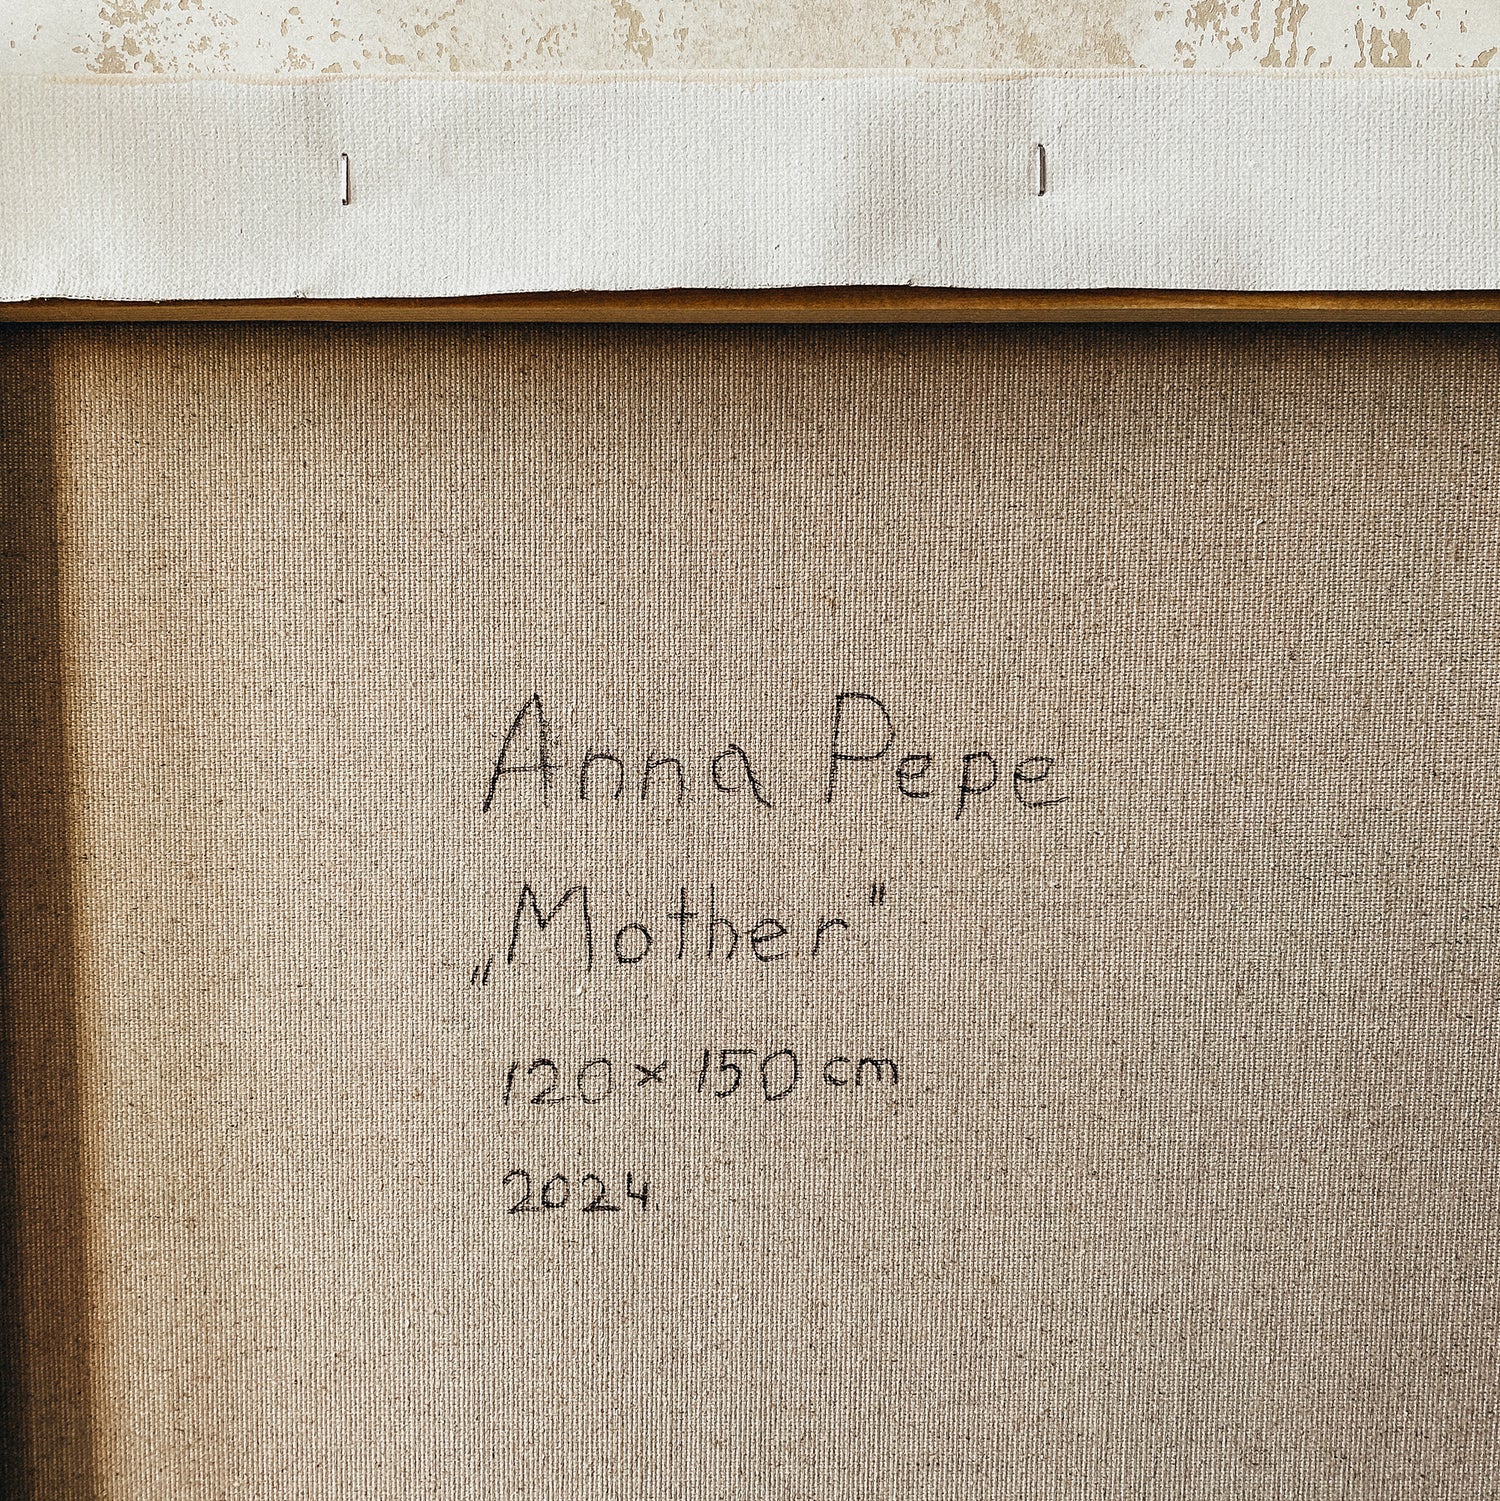 Anna Pepe
„Mother"
120 x 150 cm
2024